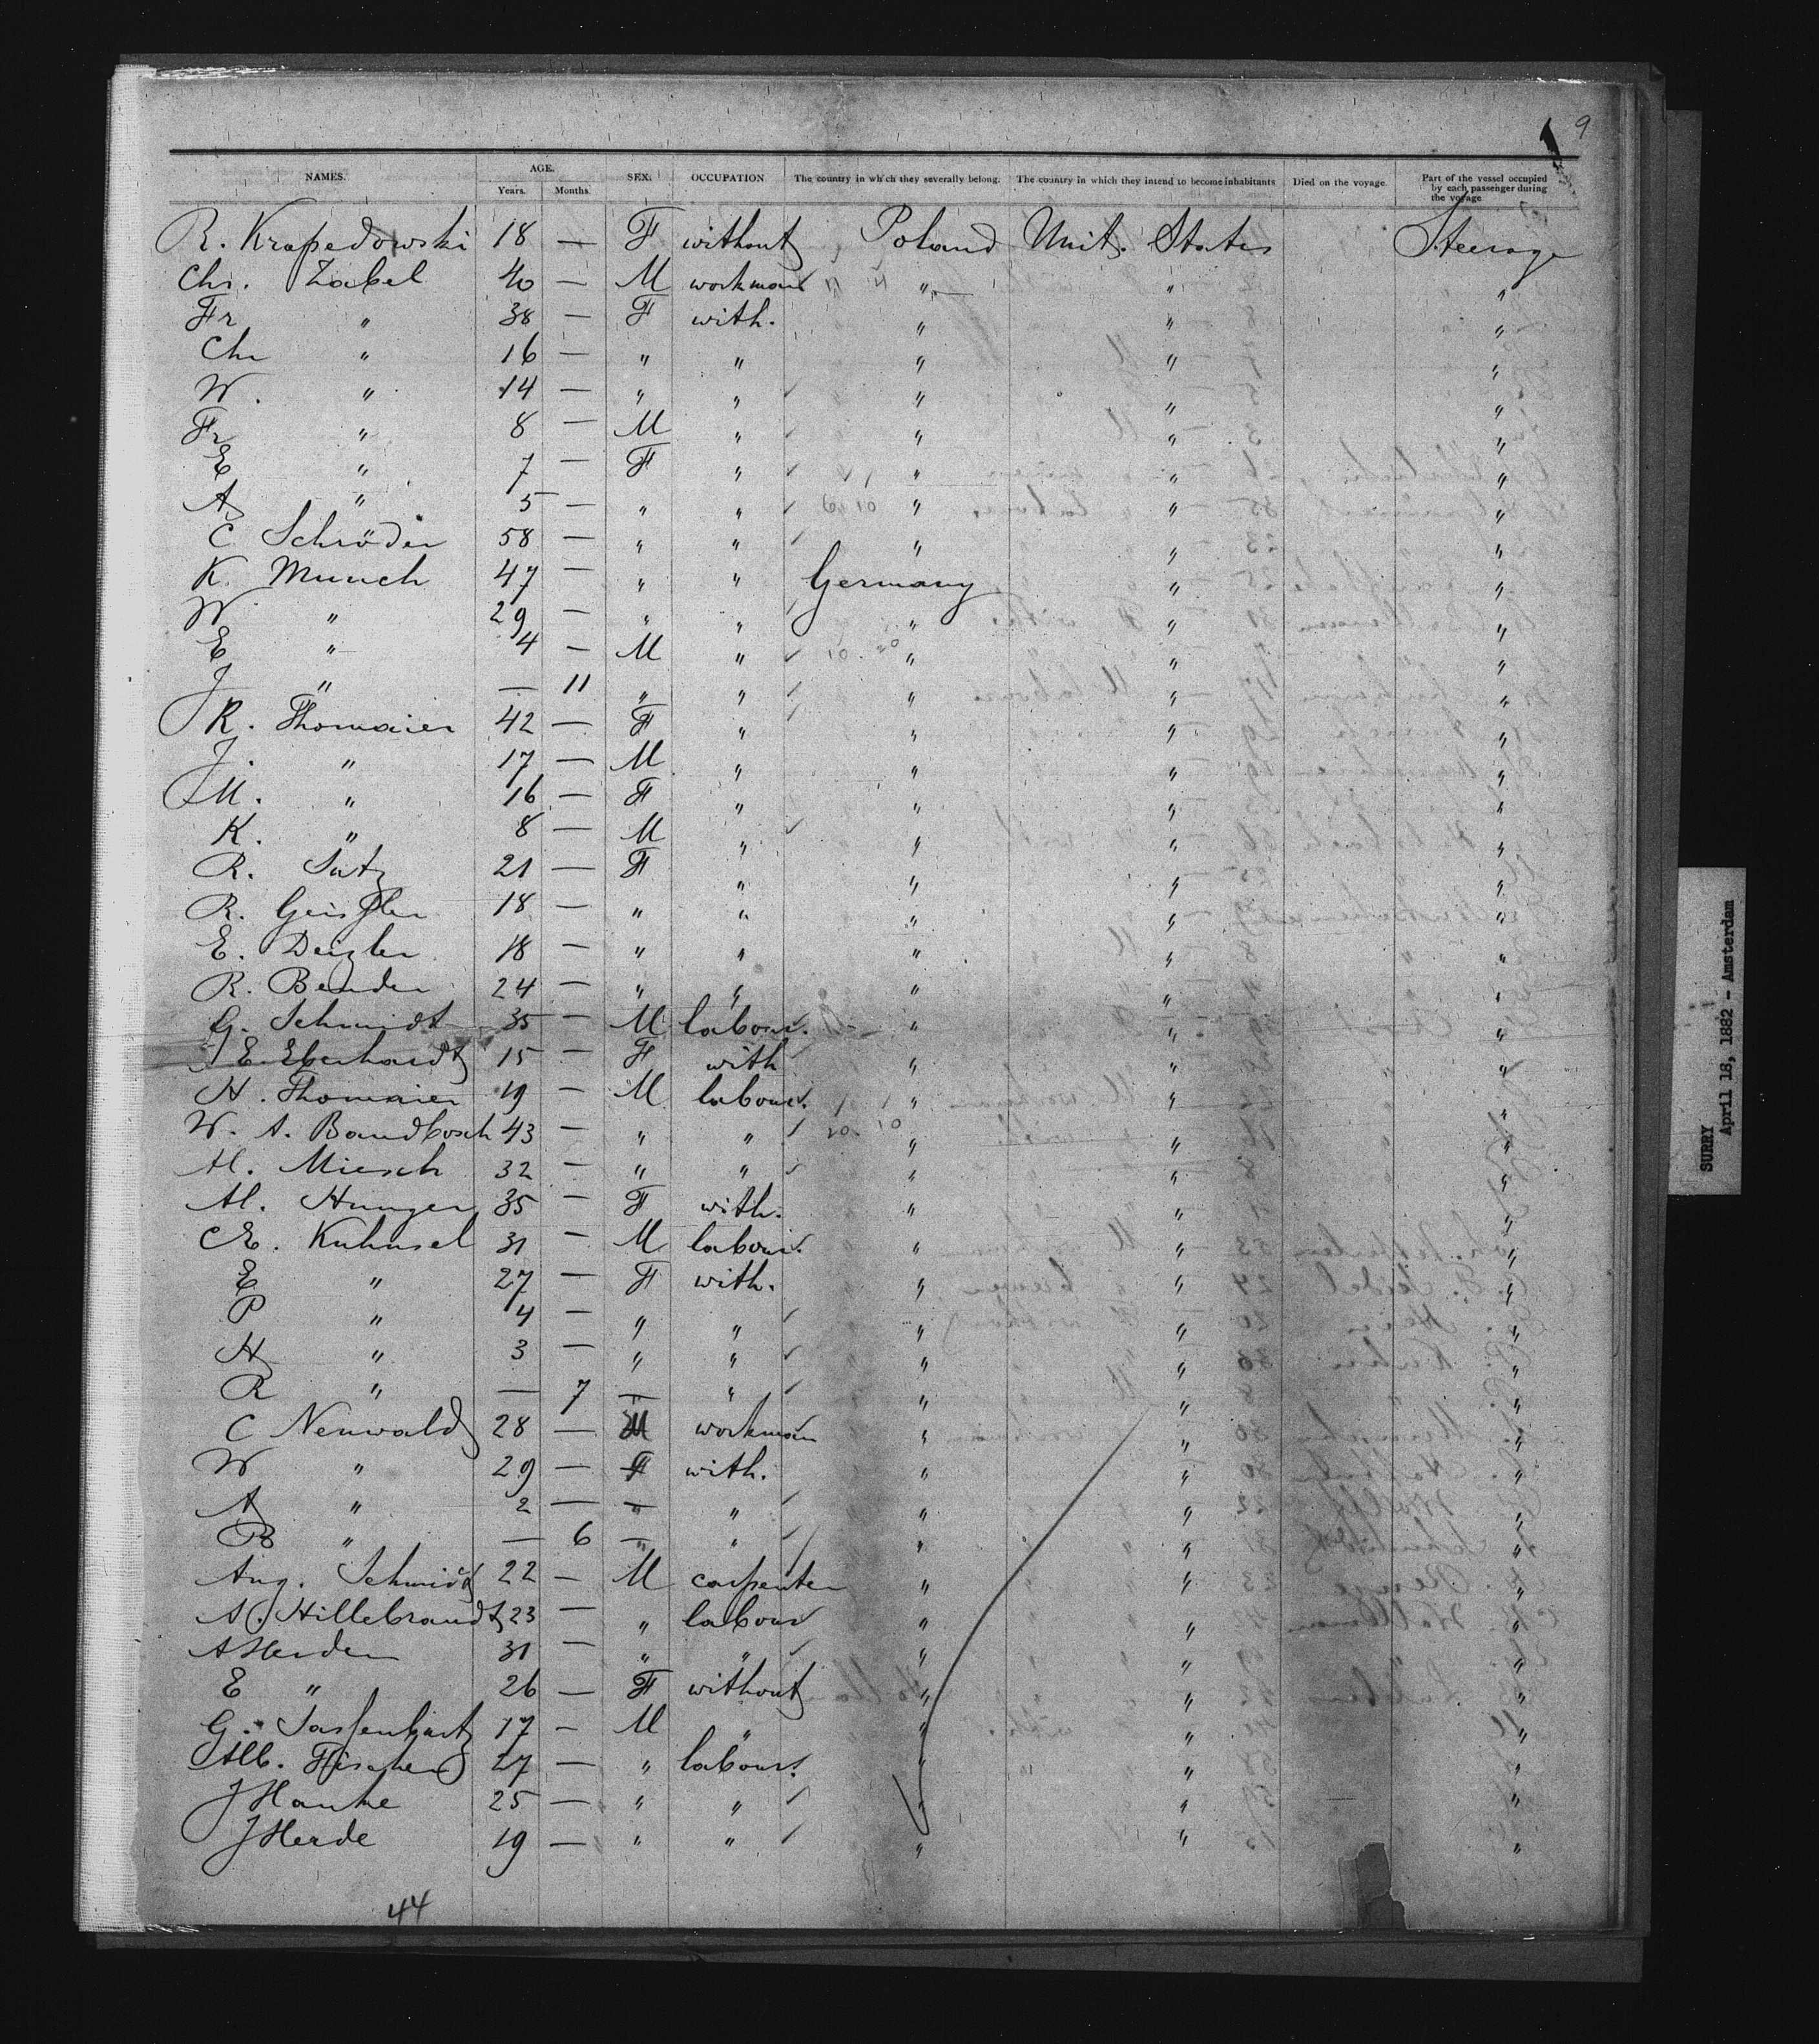 9
NAMES. AGE. Years. Months. SEX. OCCUPATION The country in which they severally belong. The country in which they intend to become inhabitants Died on the voyage. Part of the vessel occupied by each passenger during the voyage
R. Krapedowski 18 — F without Poland Unit. States Steerage
Chr. Zabel 40 — M workman " " "
Fr " 38 — F with. " " "
Chr " 16 — " " " " "
W. " 14 — " " " " "
Fr " 8 — M " " " "
E " 7 — F " " " "
A " 5 — " " " " "
C Schröder 58 — " " " " "
K. Munch 47 — " " Germany " "
W " 29 — " " " " "
E " 4 — M " " " "
J " — 11 " " " " "
R. Thomaier 42 — F " " " "
J. " 17 — M " " " "
M. " 16 — F " " " "
K. " 8 — M " " " "
R. 21 — F " " " "
R. Geisler 18 — " " " " "
E. Deizler 18 — " " " " "
R. Bender 24 — " " " " "
G. Schmidt 35 — M labour. " " "
E Eberhardt 15 — F with " " "
H. Thomaier 19 — M labour. " " "
W. A. Bandbosch 43 — " " " " "
M. Miesch 32 — " " " " "
M. Hunger 35 — F with. " " "
E. Kuhnsel 31 — M labour. " " "
E " 27 — F with. " " "
P " 4 — " " " " "
H " 3 — " " " " "
R " — 7 " " " " "
C Neuwald 28 — M workman " " "
W " 29 — F with. " " "
A " 2 — " " " " "
B " — 6 " " " " "
Aug. Schmidt 22 — M carpenter " " "
A. Hillebrandt 23 — " labour " " "
A Herden 31 — " " " " "
E " 26 — F without " " "
G. 17 — M " " " "
Alb. Fischer 27 — " labour. " " "
J Hanke 25 — " " " " "
J Herde 19 — " " " " "
44
SURRY
April 18, 1882 - Amsterdam